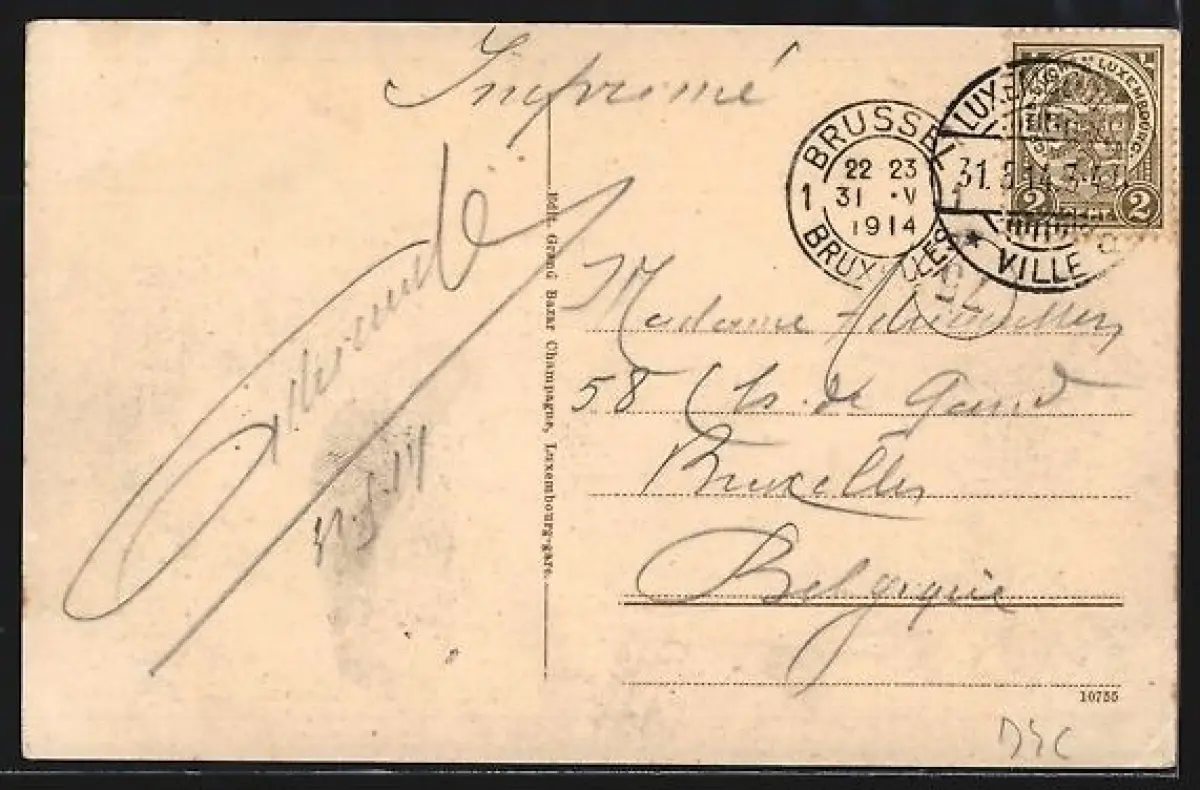 Imprimé
BRUSSEL
22 23
1 31 ·V
1914
BRUXELLES
LUXEMBOURG
2 2
31.5.14.3-4
1
VILLE
92
Madame
58 Chs. de Gand
Bruxelles
Belgique
31.5.14
Edit. Grand Bazar Champagne, Luxembourg-gare.
10755